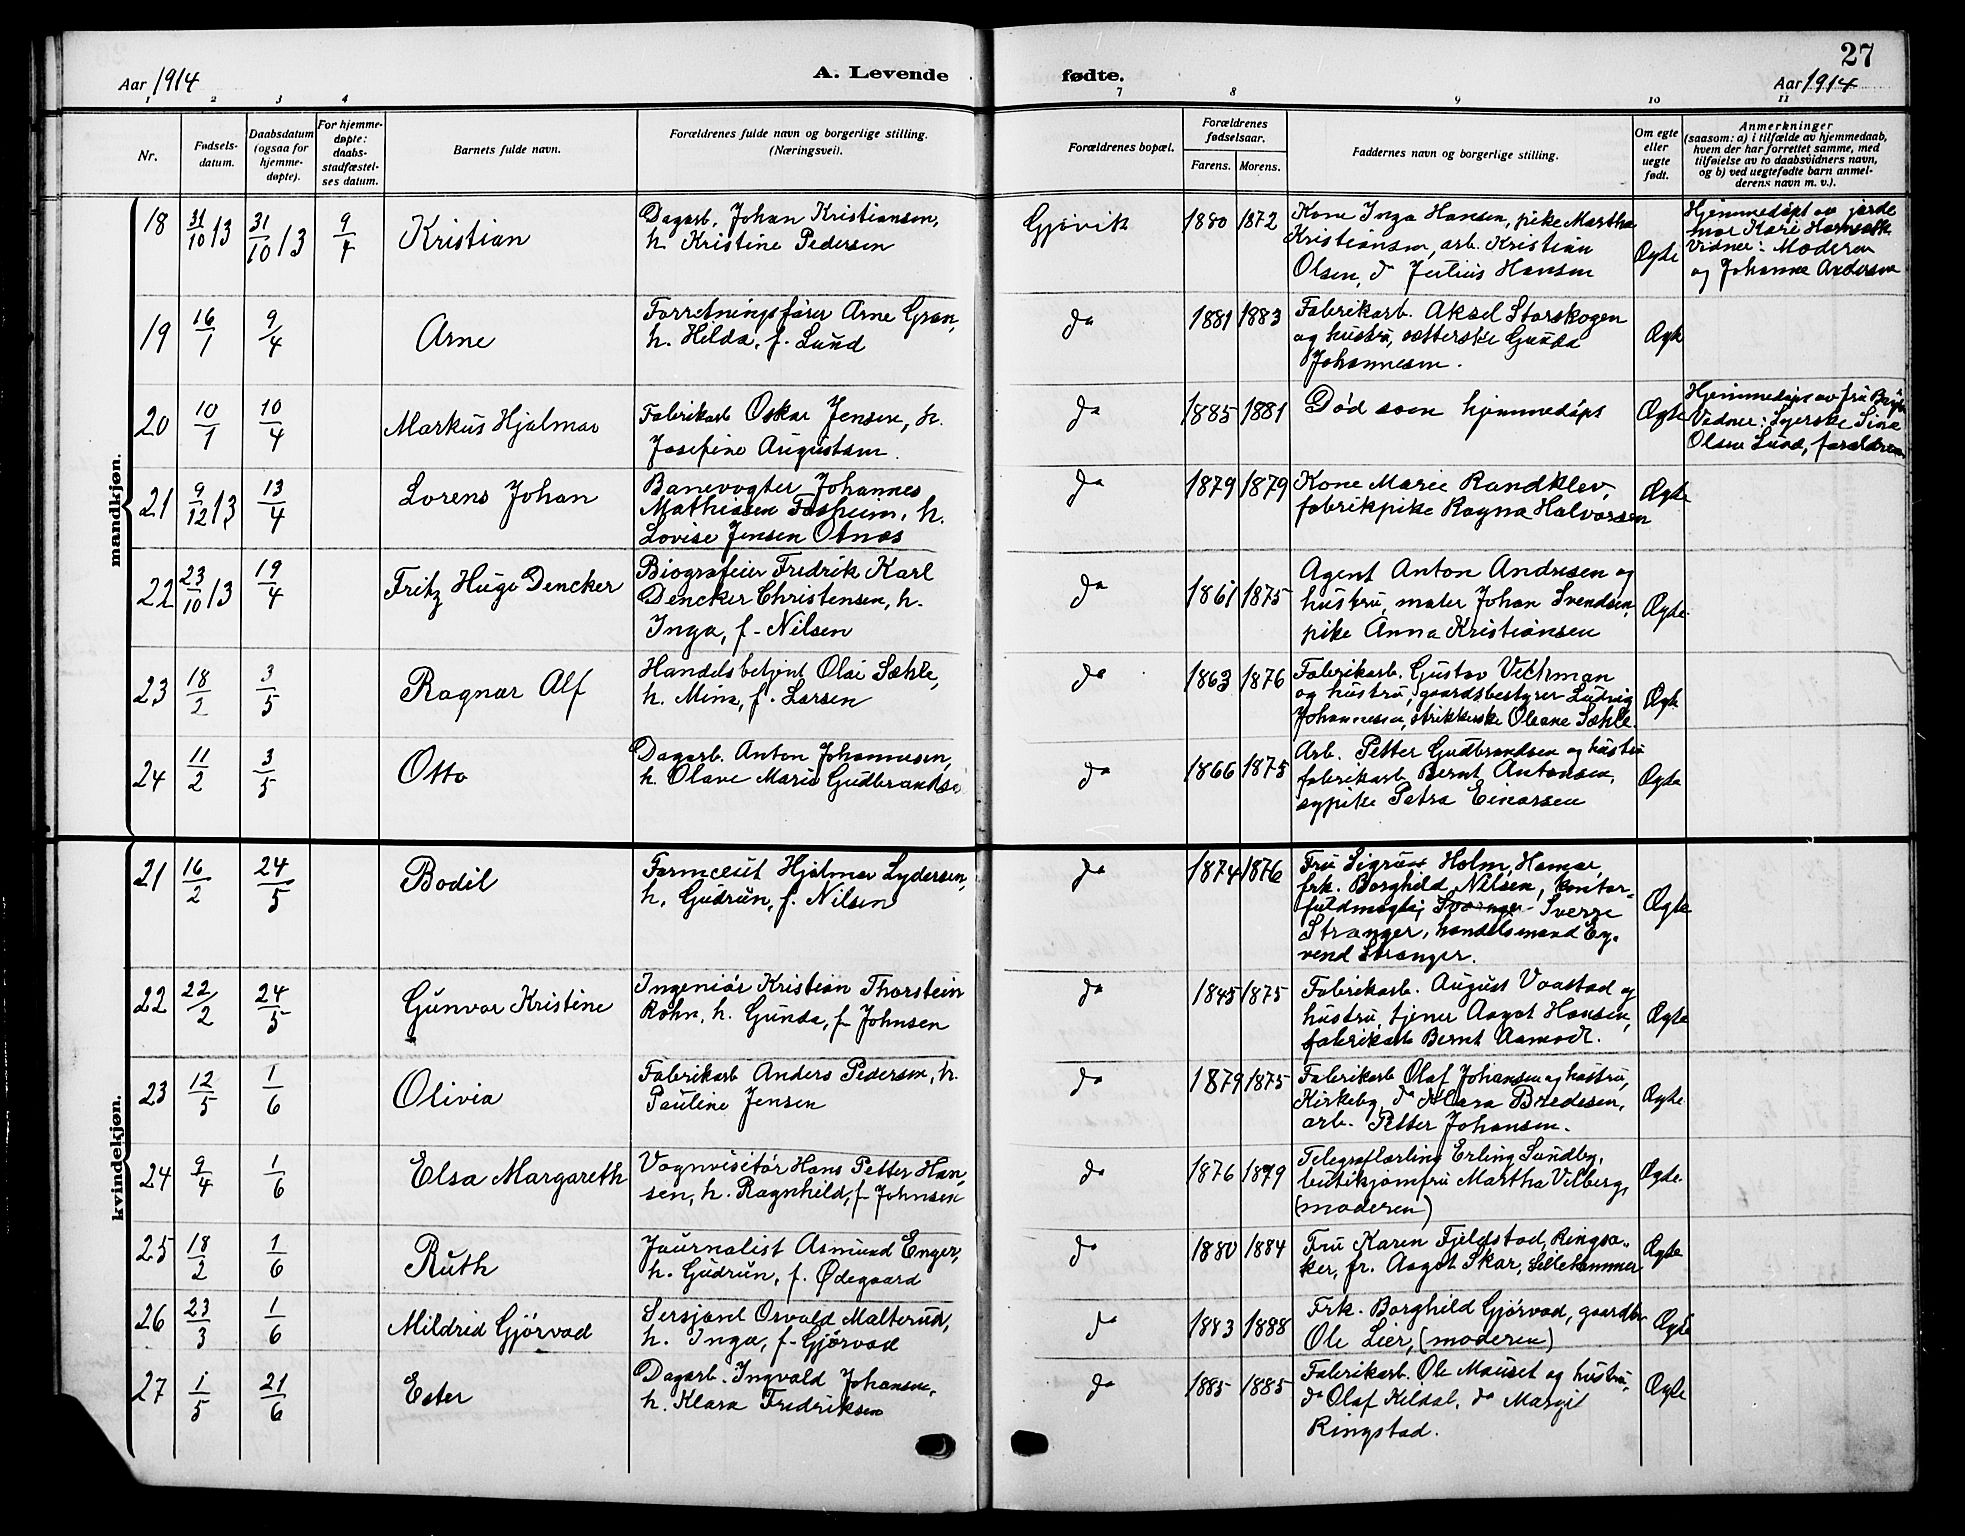 27
Aar 1914
A. Levende fødte.
Aar 1914
1 2 3 4 7 8 9 10 11
Nr.
Fødsels-
datum.
Daabsdatum
(ogsaa for
hjemme-
døpte).
For hjemme-
døpte:
daabs-
stadfæstel-
ses datum.
Barnets fulde navn.
Forældrenes fulde navn og borgerlige stilling.
(Næringsvei).
Forældrenes bopæl.
Forældrenes
fødselsaar.
Farens. Morens.
Faddernes navn og borgerlige stilling.
Om egte
eller
uegte
født.
Anmerkninger
(saasom: a) i tilfælde av hjemmedaab,
hvem der har forrettet samme, med
tilføielse av to daabsvidners navn,
og b) ved uegtefødte barn anmel-
derens navn m. v.).
mandkjøn.
18 31/10 13 31/10 13 9/4 Kristian
Dagarb. Johan Kristiansen,
h. Kristine Pedersen
Gjøvik 1880 1872
Kone Inga Hansen, pike Martha
Kristiansen, arb. Kristian
Olsen, do Julius Hansen
Ægte
Hjemmedøpt av jorde
mor Kari
Vidner: Moderen
og Johanne Andersen
19 16/1 9/4 Arne
Forretningsfører Arne Gran,
h. Hilda, f. Lund
do 1881 1883
Fabrikarb. Aksel Storskogen
og hustru, sætterske Gunda
Johannesen.
Ægte
20 10/1 10/4 Markus Hjalmar
Fabrikarb Oskar Jensen, h.
Josefine Augustsen.
do 1885 1881
Død som hjemmedøpt
Ægte
Hjemmedøpt av fru
Vidner: Syerske Sina
Olsen Lund, forældrene
21 9/12 13 13/4 Lorens Johan
Banevogter Johannes
Mathiasen Fosheim, h.
Lovise Jensen Otnes
do 1879 1879
Kone Marie Randklev,
fabrikpike Ragna Halvorsen
Ægte
22 23/10 13 19/4 Fritz Hugo Dencker
Biografeier Fredrik Karl
Dencker Christensen, h.
Inga, f. Nilsen
do 1861 1875
Agent Anton Andresen og
hustru, maler Johan Svendsen,
pike Anna Kristiansen
Ægte
23 18/2 3/5 Ragnar Alf
Handelsbetjent Olai Sæhle,
h. Mina, f. Larsen
do 1863 1876
Fabrikarb. Gustav Vethman
og hustru, gaardsbestyrer Ludvig
Johannesen, strikkerske Oleane Sæhle.
Ægte
24 11/2 3/5 Otto
Dagarb. Anton Johannesen,
h. Olave Marie Gudbrandse
do 1866 1875
Arb. Petter Gudbrandsen og hustru
fabrikarb. Bernt Antonsen,
sypike Petra Einarsen
Ægte
kvindekjøn.
21 16/2 24/5 Bodil
Farmceut Hjalmar Lydersen,
h. Gudrun, f. Nilsen
do 1874 1876
Fru Sigrun Holm, Hamar,
frk. Borghild Nilsen, kontor-
fuldmægtig Sverre
Stranger, handelsmand Ey-
vend Stranger.
Ægte
22 22/2 24/5 Gunvor Kristine
Ingeniør Kristian Thorstein
Rohn, h. Gunda, f. Johnsen
do 1845 1875
Fabrikarb. August Vaastad og
hustru, tjener Aagot Hansen,
fabrikarb Bernt Aamodt.
Ægte
23 12/5 1/6 Olivia
Fabrikarb Anders Pedersen, h.
Pauline Jensen
do 1879 1875
Fabrikarb Olaf Johansen og hustru,
Kirkeby, do Klara Bredesen,
arb. Petter Johansen.
Ægte
24 9/4 1/6 Elsa Margareth
Vognvisitør Hans Petter Han-
sen, h. Ragnhild, f. Johnsen
do 1876 1879
Telegraflærling Erling Sundby,
butikjomfru Martha Vilberg,
(moderen)
Ægte
25 18/2 1/6 Ruth
Journalist Asmund Enger,
h. Gudrun, f. Ødegaard
do 1880 1884
Fru Karen Fjeldstad, Ringsa-
ker, fr. Aagot Skar, Lillehammer
Ægte
26 23/3 1/6 Mildrid Gjørvad
Sersjant Osvald Malterud,
h. Inga, f. Gjørvad
do 1883 1888
Frk. Borghild Gjørvad, gaardbr
Ole Lier, (moderen)
Ægte
27 1/5 21/6 Ester
Dagarb. Ingvald Johansen,
h. Klara Fredriksen
do 1885 1885
Fabrikarb. Ole Mauset og hustru,
do Olaf Kildal, do Margit
Ringstad.
Ægte